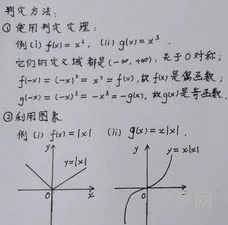 判定方法:
① 使用判定定理:
例(i) f(x) = x², (ii) g(x) = x³.
它们的定义域都是(-∞, +∞), 关于0对称;
f(-x) = (-x)² = x² = f(x), 故f(x)是偶函数;
g(-x) = (-x)³ = -x³ = -g(x), 故g(x)是奇函数.
② 利用图象
例 (i) f(x) = |x| (ii) g(x) = x|x|.
y
y = |x|
0
x
y
y = x|x|
0
x